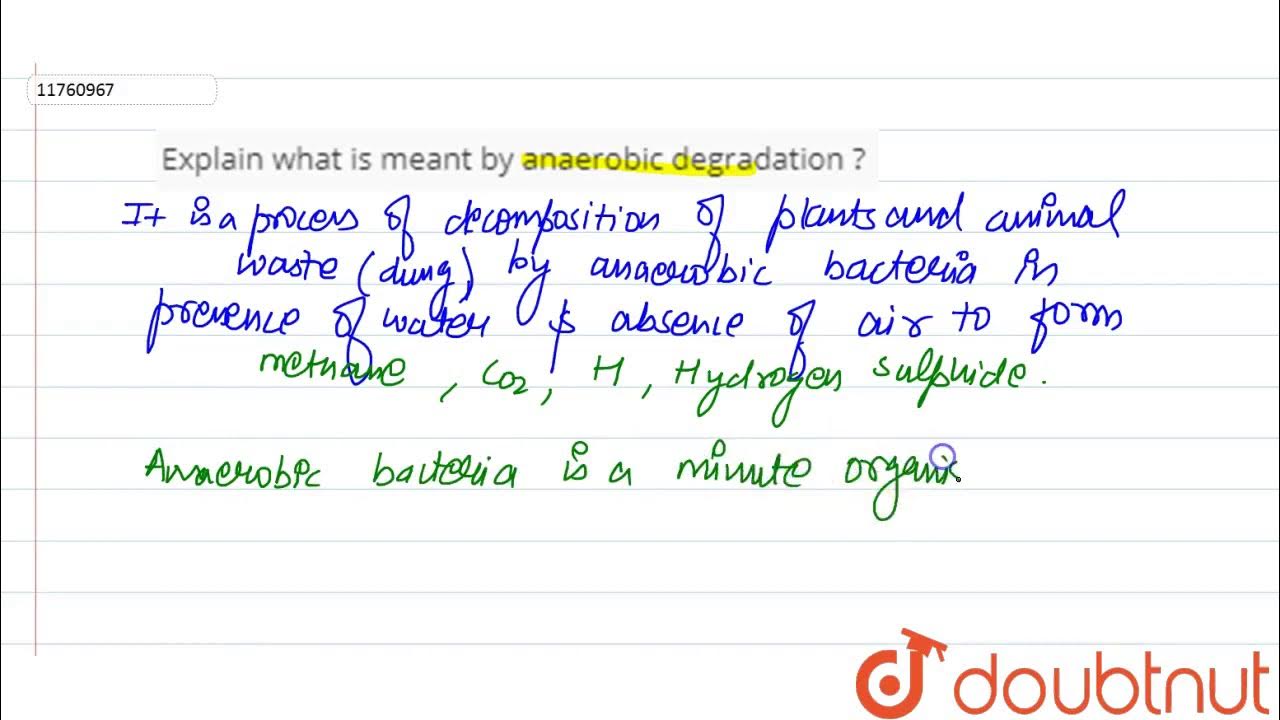 11760967
Explain what is meant by anaerobic degradation ?
It is a process of decomposition of plants and animal
waste (dung) by anaerobic bacteria in
presence of water & absence of air to form
methane, CO2, H, Hydrogen sulphide.
Anaerobic bacteria is a minute organi
doubtnut